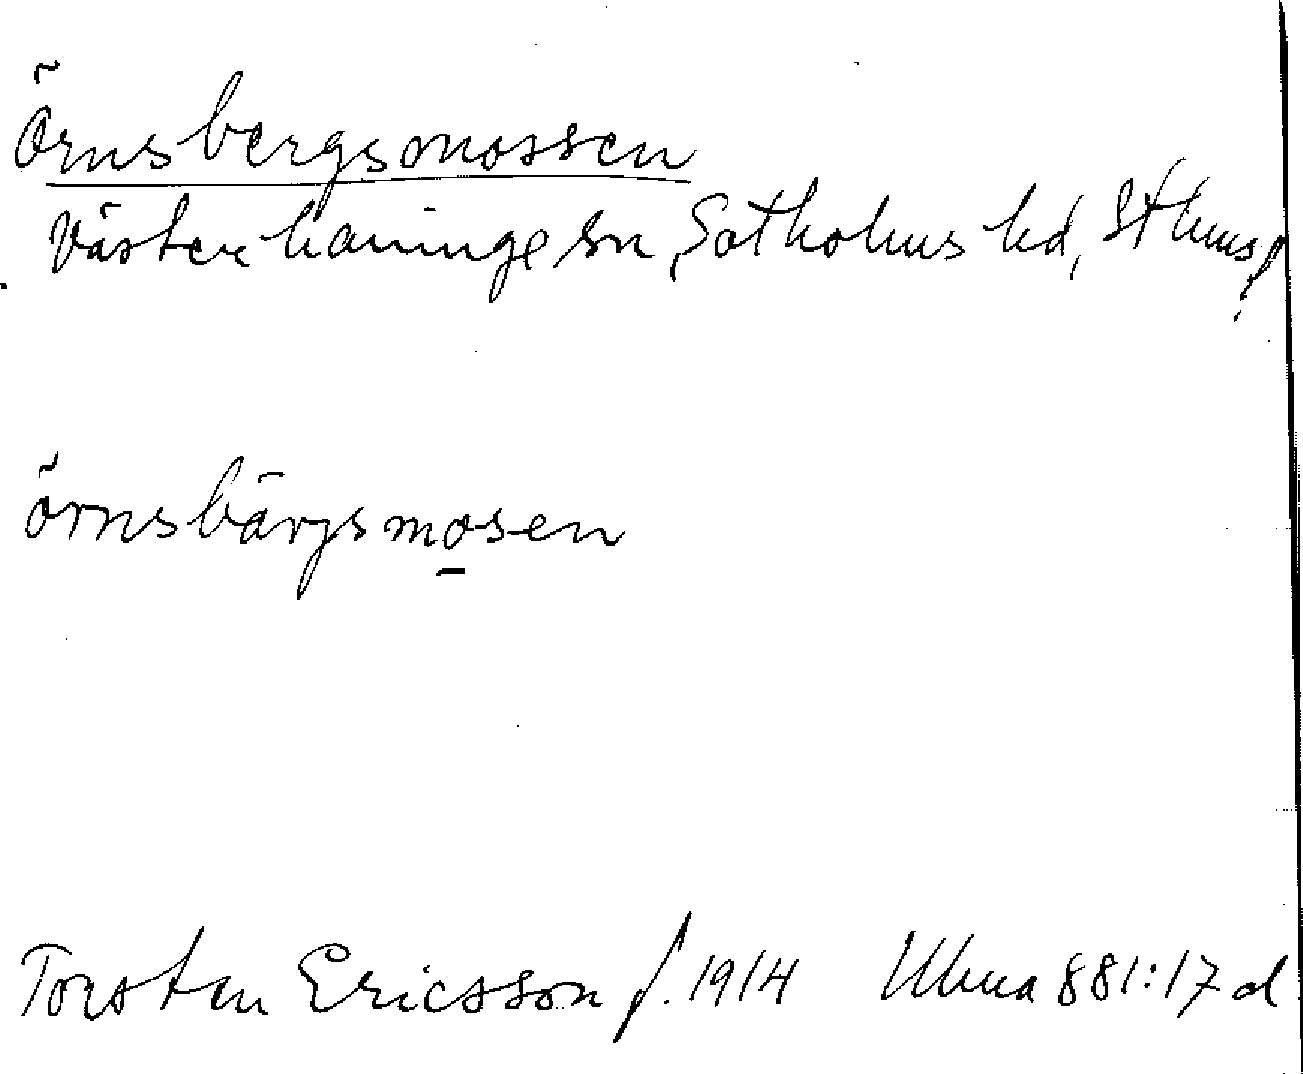 Örnsbergsmossen
Västerhaninge sn, Sotholms hd, Sthms
örnsbärjsmosen
Torsten Ericsson f. 1914 Ulma 881:17 d